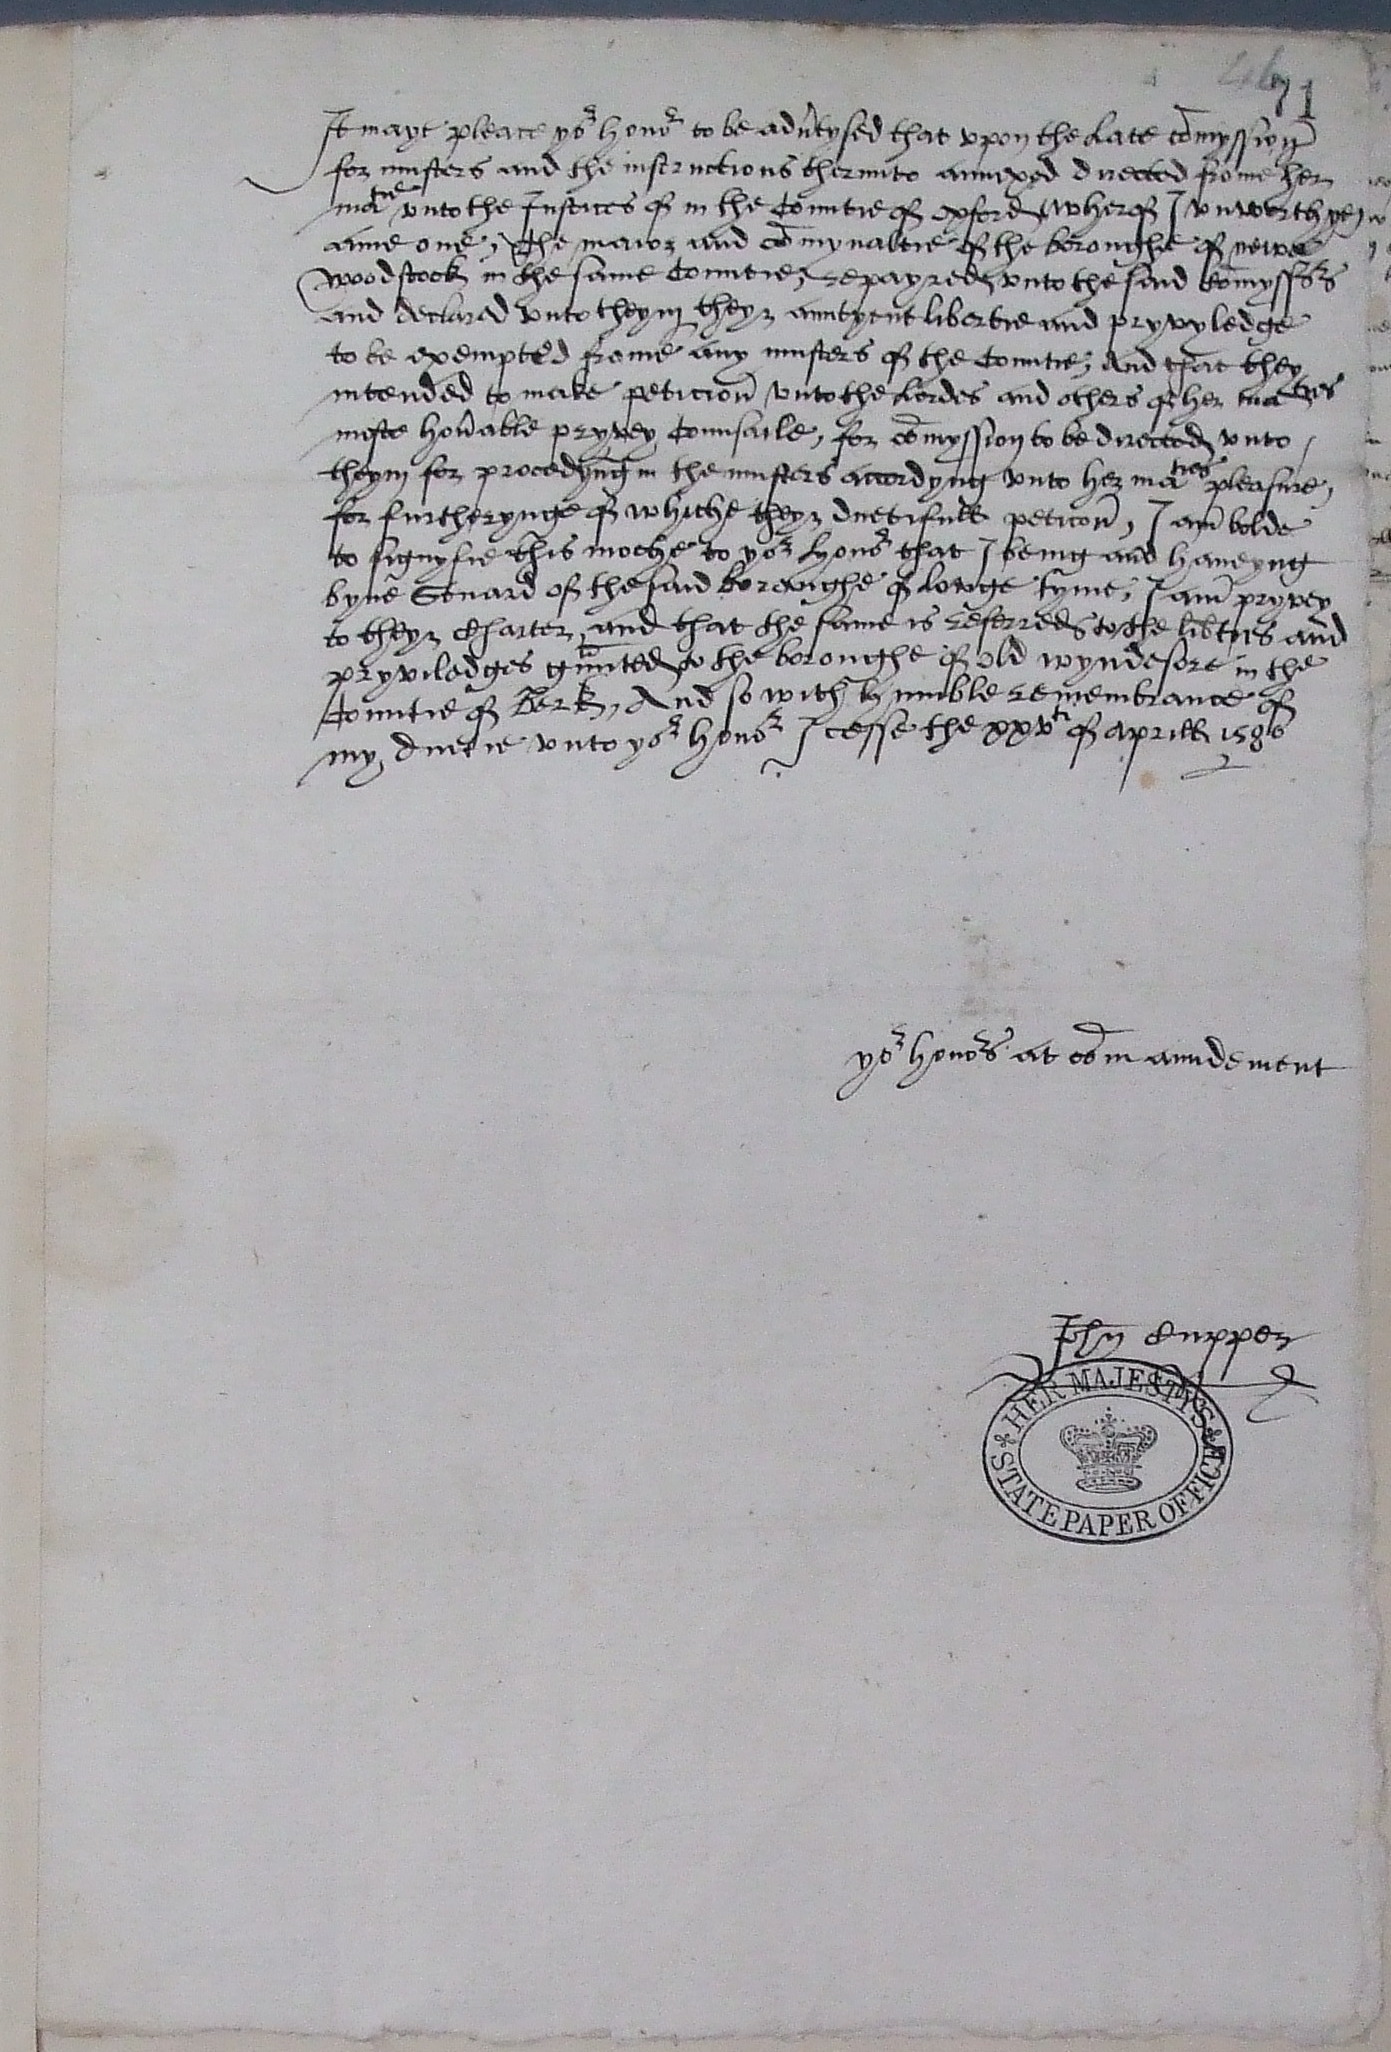 71
It maye pleace yor honor to be advtysed that vpon the late comyssion
for musters and the instructions thervnto annexed directed frome her
matie vnto the Justices of in the Countie of oxford, wherof I vnworthye
ame one, The maior and comynaltie of the boroughe of newe
woodstock in the same Countie, repayred vnto the said Comyssrs
and declared vnto theym theyr auntyent libertie and pryvyledge
to be exempted frome any musters of the Countie, And that they
intended to make peticion vnto the Lordes and others of her maties
moste honable pryvey Counsaile, for comyssion to be directed vnto
theym for procedyng in the musters accordyng vnto her maties pleasure,
for furtherynge of whiche theyr duetifull peticon, I am bolde
to signyfie this moche to yor honor that I being and haveyng
byne Stuard of the said boroughe of longe tyme, I am pryvey
to theyr Charter, and that the same is referred to the libties and
pryviledges graunted to the boroughe of old wyndesore in the
Countie of Berk, And so with humble remembrance of
my duetie vnto yor honor I cesse the xxvth of Aprill 1586
yor honors at comaundement
John Cupper
HER MAJESTY'S
STATE PAPER OFFICE